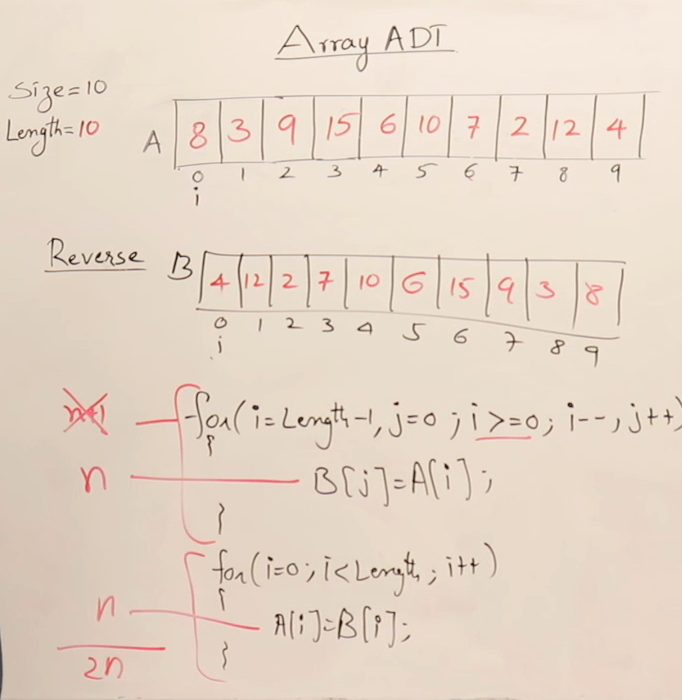 Array ADT
Size=10
Length=10
A 8 3 9 15 6 10 7 2 12 4
0 1 2 3 4 5 6 7 8 9
i
Reverse B 4 12 2 7 10 6 15 9 3 8
0 1 2 3 4 5 6 7 8 9
j
n+1 for(i=Length-1, j=0 ; i>=0; i--, j++)
{
n B[j]=A[i];
}
for(i=0; i<Length; i++)
{
n A[i]=B[i];
2n }